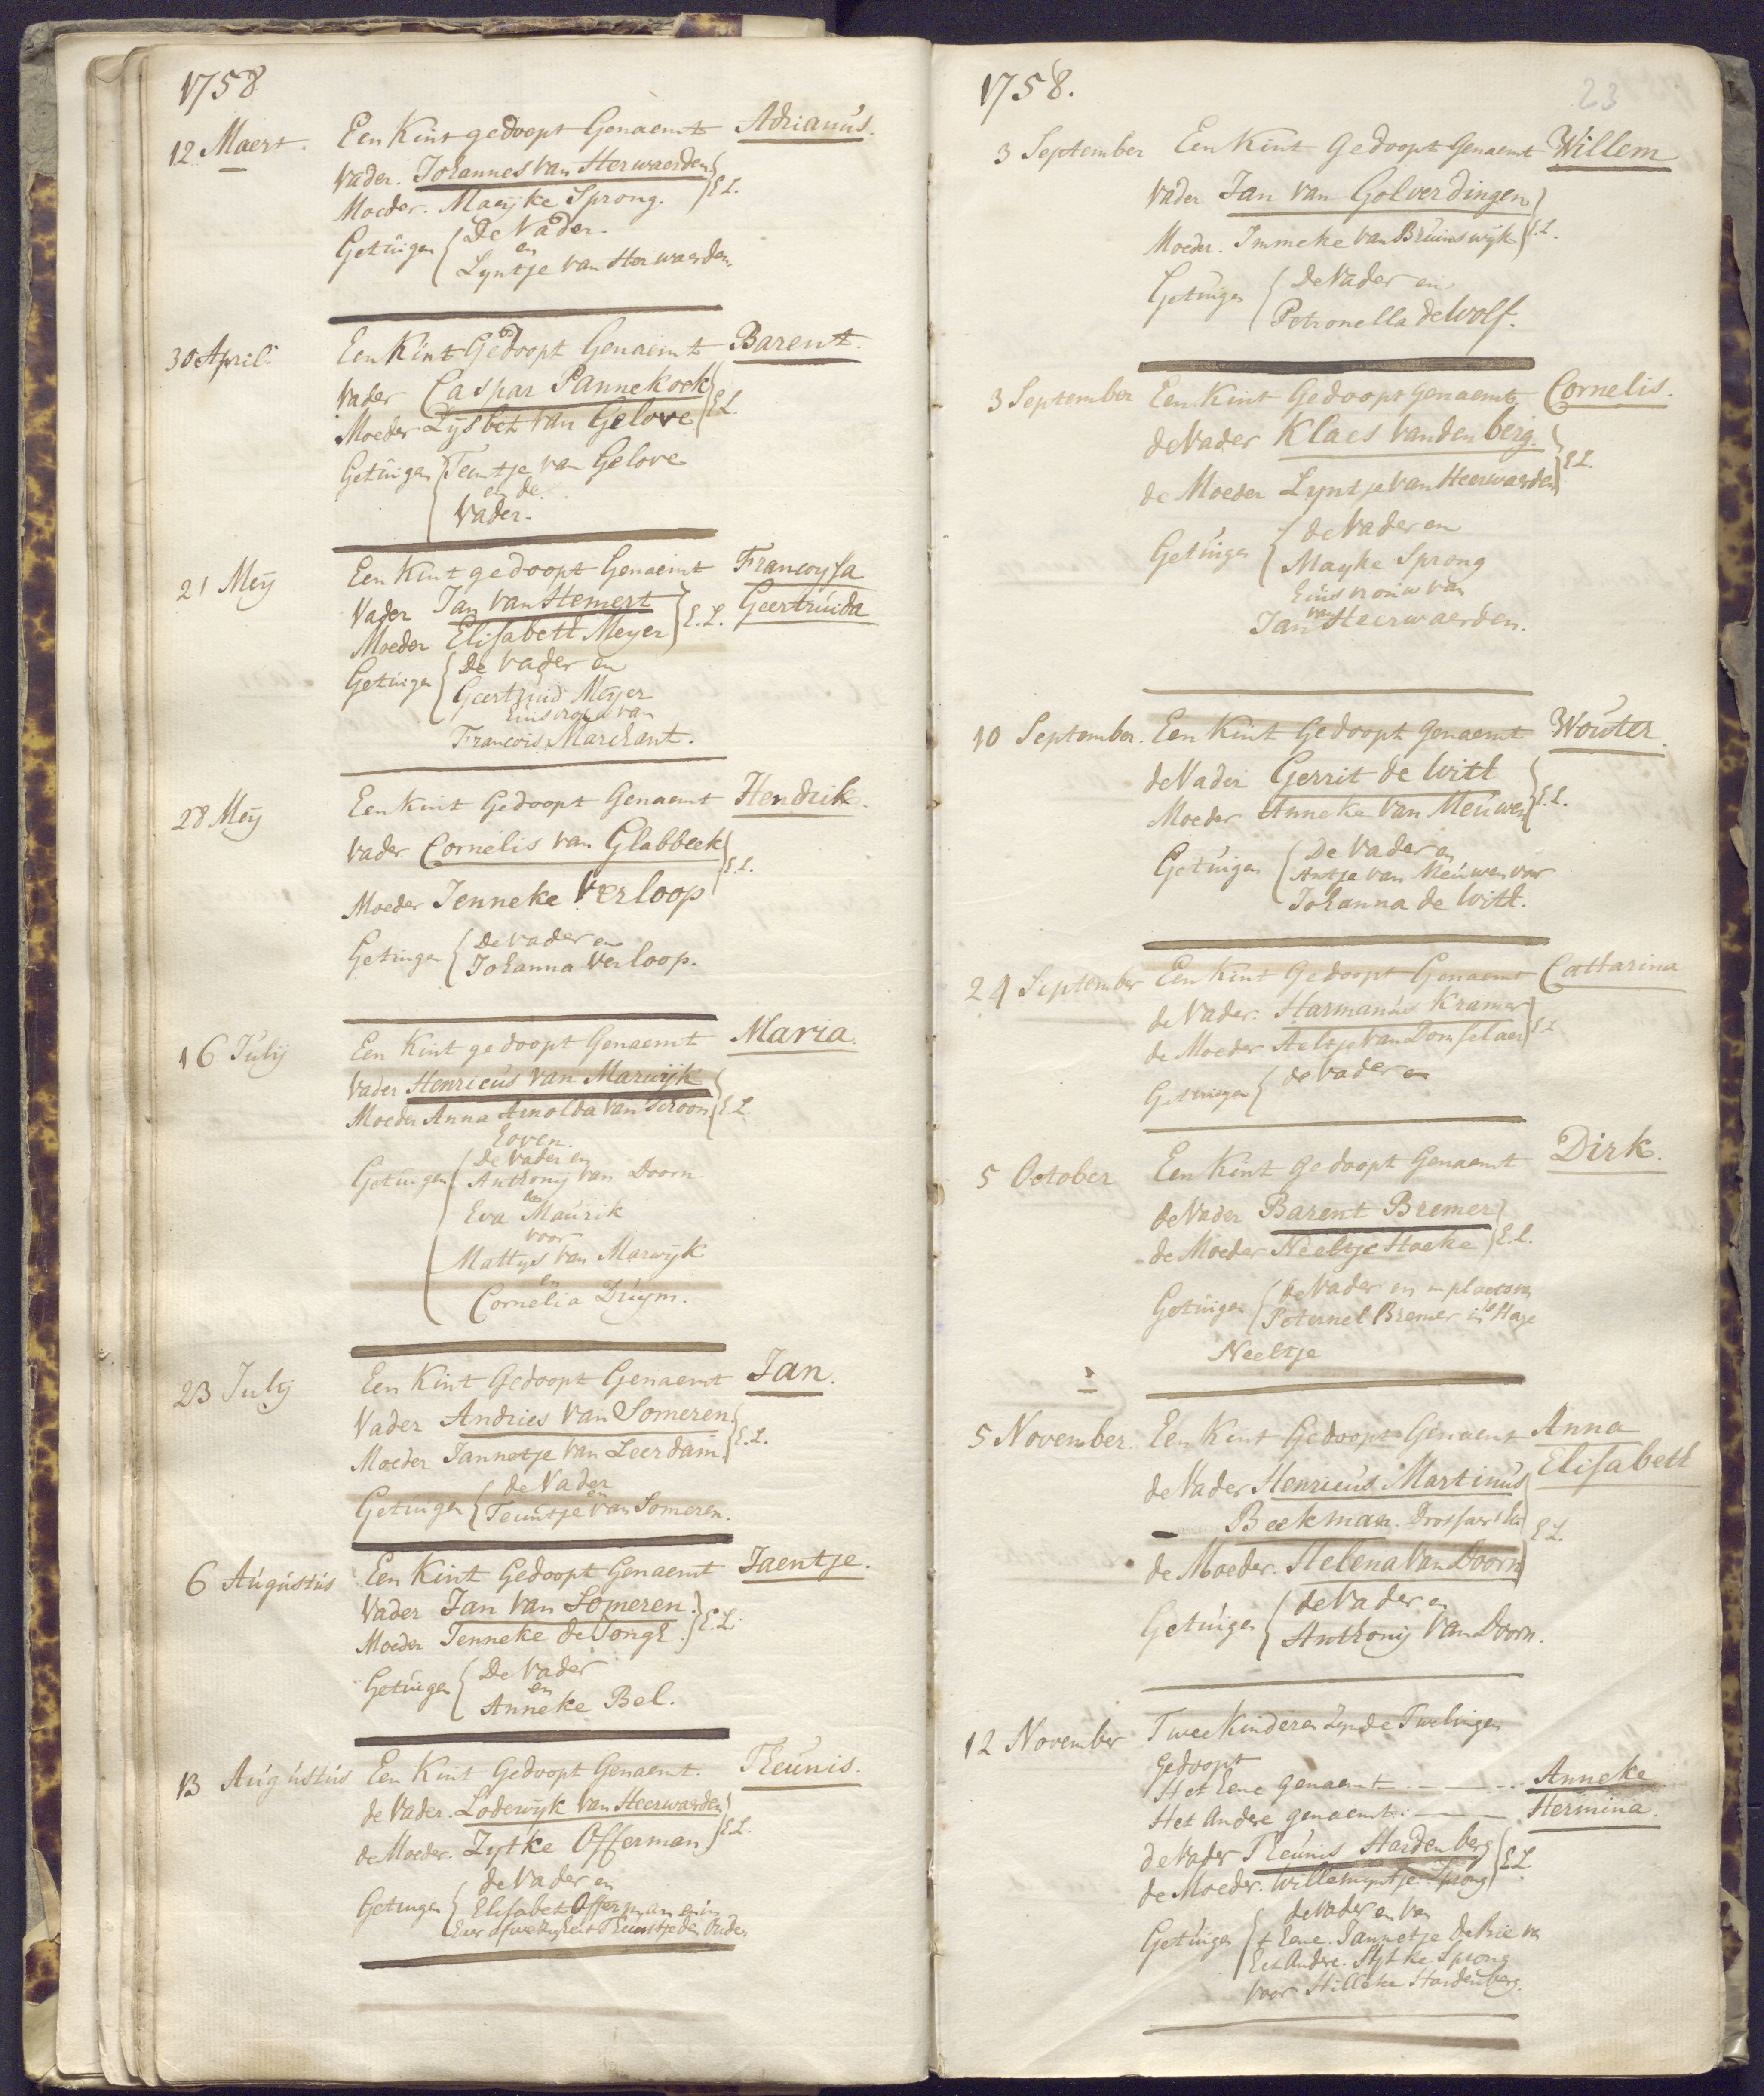 1758
12 Maert. Een Kint gedoopt Genaemt Adrianus.
Vader. Johannes van Herwaerden
Moeder. Maeyke Sprong. E L.
Getuigen De Vader.
en
Lyntje van Herwaerden.
30 April. Een Kint Gedoopt Genaemt Barent.
Vader Caspar Pannekoek
Moeder Lysbet van Gelove E L
Getuigen Teuntje van Gelove
en de
Vader.
21 Meij Een Kint gedoopt Genaemt Francoysa
Vader Jan van Hemert E. L. Geertruida
Moeder Elisabeth Meyer
Getuigen De Vader en
Geertruid Meyer
Huisvrouw van
Francois Marchant.
28 Meij Een Kint Gedoopt Genaemt Hendrik.
Vader Cornelis van Glabbeek
E. L.
Moeder Jenneke Verloop
Getuigen De Vader en
Johanna Verloop.
16 Julij Een Kint gedoopt Genaemt Maria.
Vader Henricus van Marwijk
Moeder Anna Arnolda van Schoon E L.
hoven.
De Vader en
Getuigen Anthonij van Doorn
en
Eva Maurik
voor
Mattys van Marwijk
en
Cornelia Druym.
23 Julij Een Kint Gedoopt Genaemt Jan.
Vader Andries van Someren
Moeder Jannetje van Leerdam E. L.
de Vader
en
Getuigen Teuntje van Someren.
6 Augustus Een Kint Gedoopt Genaemt Jaentje.
Vader Jan van Someren
Moeder Jenneke de Jongh. E. L.
Getuigen De Vader
en
Anneke Bel.
13 Augustus Een Kint Gedoopt Genaemt. Theunis.
de Vader. Lodewijk van Heerwaarden
de Moeder. Zytke Offerman. E L.
de Vader en
Getuigen Elisabet Offerman
Theuntje den Oude.
1758. 23
3 September Een Kint Gedoopt Genaemt Willem
Vader Jan van Golverdingen
Moeder. Immeke van Bruinswijk E. L.
Getuigen De Vader en
Petronella de Wolf.
3 September Een Kint Gedoopt Genaemt Cornelis.
de Vader Klaes van den berg.
de Moeder Lyntje van Heerwaerden E L.
Getuigen de Vader en
Mayke Sprong
Huisvrouw van
Jan van Heerwaerden.
10 September. Een Kint Gedoopt Genaemt Wouter.
de Vader Gerrit de Witt
Moeder Anneke van Meuwen E. L.
Getuigen De Vader en
Antje van Meuwen voor
Johanna de Witt.
24 September Een Kint Gedoopt Genaemt Catharina
de Vader. Harmanus Kramer
de Moeder Aeltje van Domselaer E L
Getuigen de Vader en
5 October Een Kint Gedoopt Genaemt Dirk.
de Vader Barent Bremer
de Moeder Neeltje Hoeke E. L.
Getuigen de Vader en in plaets van
Peternel Bremer in 's Hage
Neeltje
5 November. Een Kint Gedoopt Genaemt Anna
Elisabeth
de Vader Henricus Martinus
Beekman. E L.
de Moeder. Helena van Doorn
Getuigen de Vader en
Anthonij van Doorn.
12 November Twee Kinderen Zynde Twelingen
Gedoopt
Het Eene genaemt Anneke
Het Andere genaemt Hermina.
de Vader Theunis Hardenberg
de Moeder. Willemyntje Sprong E L.
de Vader en van
Getuigen t Eene. Jannetje de Brie van
het Andere. Hytke Sprong
voor Hilleke Hardenberg.